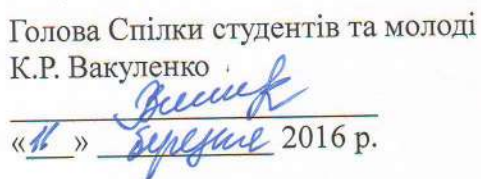 Голова Спілки студентів та молоді
К.Р. Вакуленко
«16» березня 2016 р.